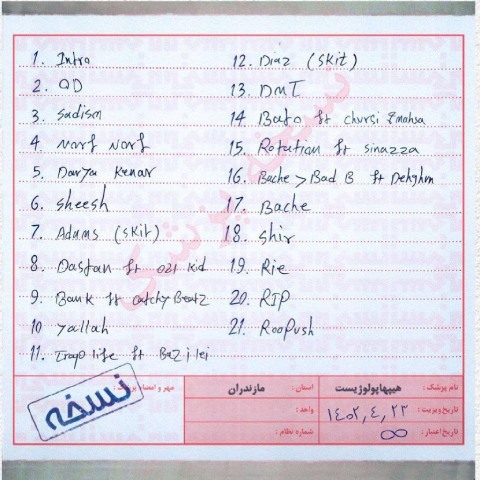 1. Intro
2. OD
3. Sadism
4. Norf Norf
5. Darya Kenar
6. Sheesh
7. Adams (Skit)
8. Dastan ft 021 Kid
9. Bank ft catchyBeatz
10 Yallah
11. Trap life ft Bezilei
12. Diaz (Skit)
13. DMT
14 Bato ft chvrsi & mahsa
15. Rotation ft sinazza
16. Bache > Bad B ft Dehghan
17. Bache
18. Shir
19. Rie
20. RIP
21. RooPush
نسخه پزشکی
نام پزشک : هیپهاپولوژیست
استان : مازندران
مهر و امضاء پزشک :
تاریخ ویزیت : ۱۴۰۲,۴,۲۳
واحد :
تاریخ اعتبار : ∞
شماره نظام :
نسخه